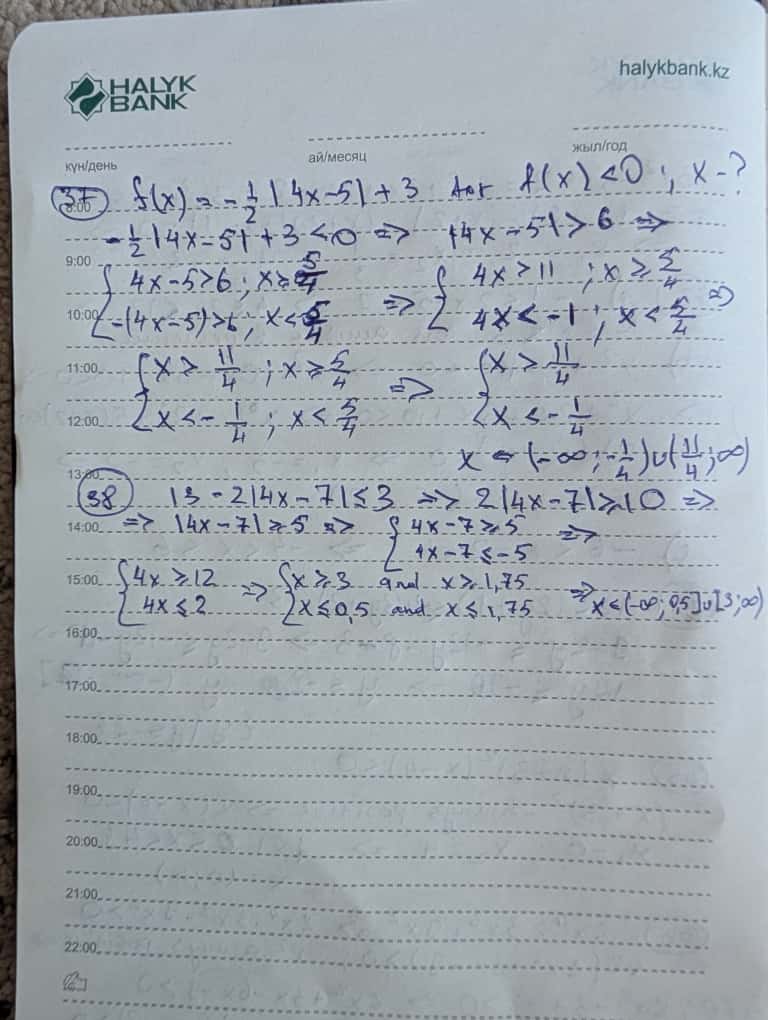 HALYK
BANK
halykbank.kz
күн/день
ай/месяц
жыл/год
37 f(x) = -1/2 |4x-5| + 3 for f(x) < 0 ; x - ?
8:00
-1/2 |4x-5| + 3 < 0 => |4x-5| > 6 =>
9:00
{ 4x-5>6 ; x ≥ 5/4 => { 4x > 11 ; x ≥ 5/4
10:00
-(4x-5)>6 ; x < 5/4 4x < -1 ; x < 5/4 =>
11:00
{ x > 11/4 ; x ≥ 5/4 => { x > 11/4
12:00
x < -1/4 ; x < 5/4 x < -1/4
x = (-∞ ; -1/4) ∪ (11/4 ; ∞)
13:00
38 13 - 2|4x-7| ≤ 3 => 2|4x-7| ≥ 10 =>
14:00
=> |4x-7| ≥ 5 => { 4x-7 ≥ 5 =>
4x-7 ≤ -5
15:00
{ 4x ≥ 12 => { x ≥ 3 and x ≥ 1,75 =>
4x ≤ 2 x ≤ 0,5 and x ≤ 1,75 x = (-∞ ; 0,5] ∪ [3 ; ∞)
16:00
17:00
18:00
19:00
20:00
21:00
22:00